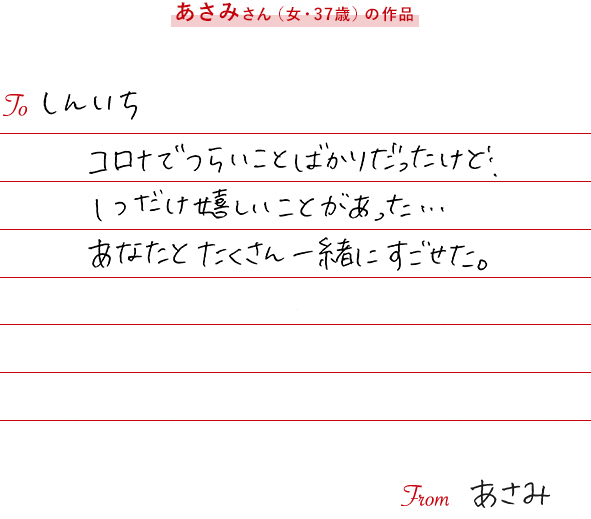 あさみさん（女・37歳）の作品
To しんいち
コロナでつらいことばかりだったけど、
1つだけ嬉しいことがあった…
あなたとたくさん一緒にすごせた。
From あさみ